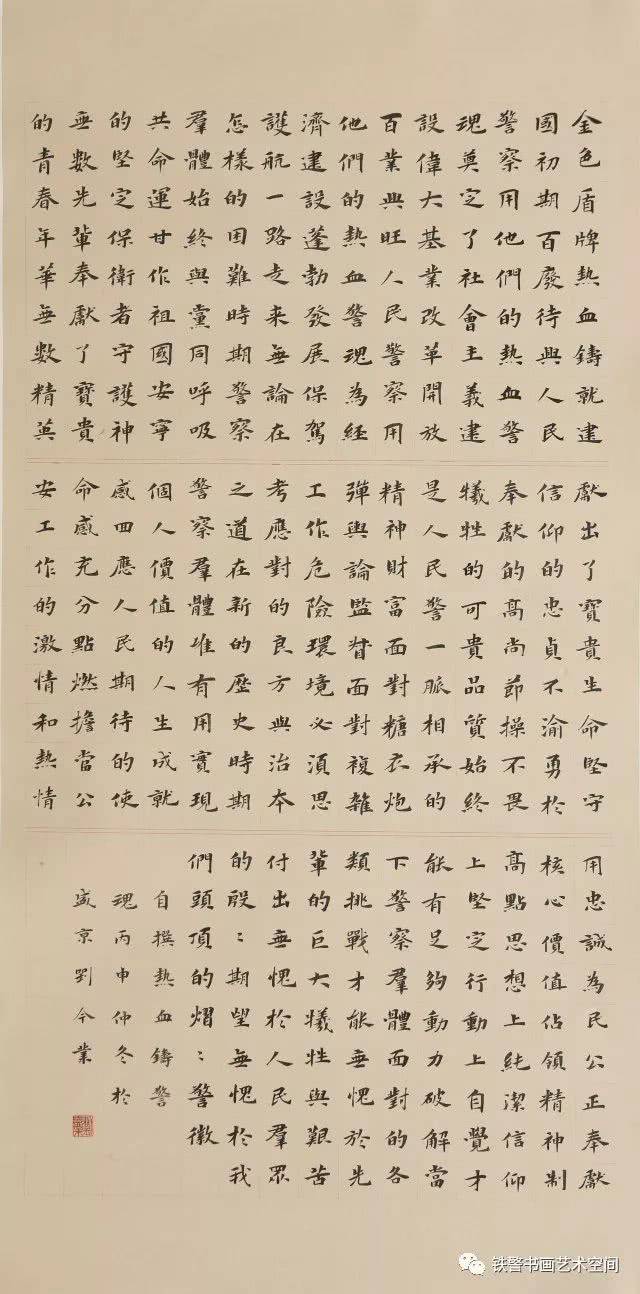 金色盾牌熱血鑄就建
國初期百廢待興人民
警察用他們的熱血警
魂奠定了社會主義建
設偉大基業改革開放
百業興旺人民警察用
他們的熱血警魂為經
濟建設蓬勃發展保駕
護航一路走來無論在
怎樣的困難時期警察
羣體始終與黨同呼吸
共命運甘作祖國安寧
的堅定保衛者守護神
無數先輩奉獻了寶貴
的青春年華無數精英
獻出了寶貴生命堅守
信仰的忠貞不渝勇於
奉獻的高尚節操不畏
犧牲的可貴品質始終
是人民警一脈相承的
精神財富面對糖衣炮
彈與論監督面對複雜
工作危險環境必須思
考應對的良方與治本
之道在新的歷史時期
警察羣體唯有用實現
個人價值的人生成就
感回應人民期待的使
命感充分點燃擔當公
安工作的激情和熱情
用忠誠為民公正奉獻
核心價值佔領精神制
高點思想上純潔信仰
上堅定行動上自覺才
能有足夠動力破解當
下警察羣體面對的各
類挑戰才能無愧於先
輩的巨大犧牲與艱苦
付出無愧於人民羣眾
的殷〻期望無愧於我
們頭頂的熠〻警徽
自撰熱血鑄警
魂丙申仲冬於
盛京劉今業
铁警书画艺术空间